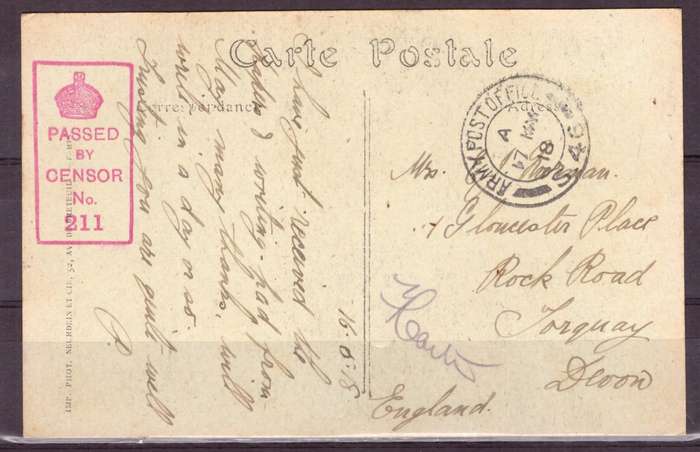 Carte Postale
Correspondance
Adresse
PASSED
BY
CENSOR
No.
211
ARMY POST OFFICE
S49
A
17
18
have just received the
& writing-pad from
May, many thanks, will
write in a day or so.
Trusting you are quite well
P.
Mrs. Norman.
Gloucester Place
Rock Road
Torquay
Devon
England.
IMP. PHOT. NEURDEIN ET CIE, 52, AV.